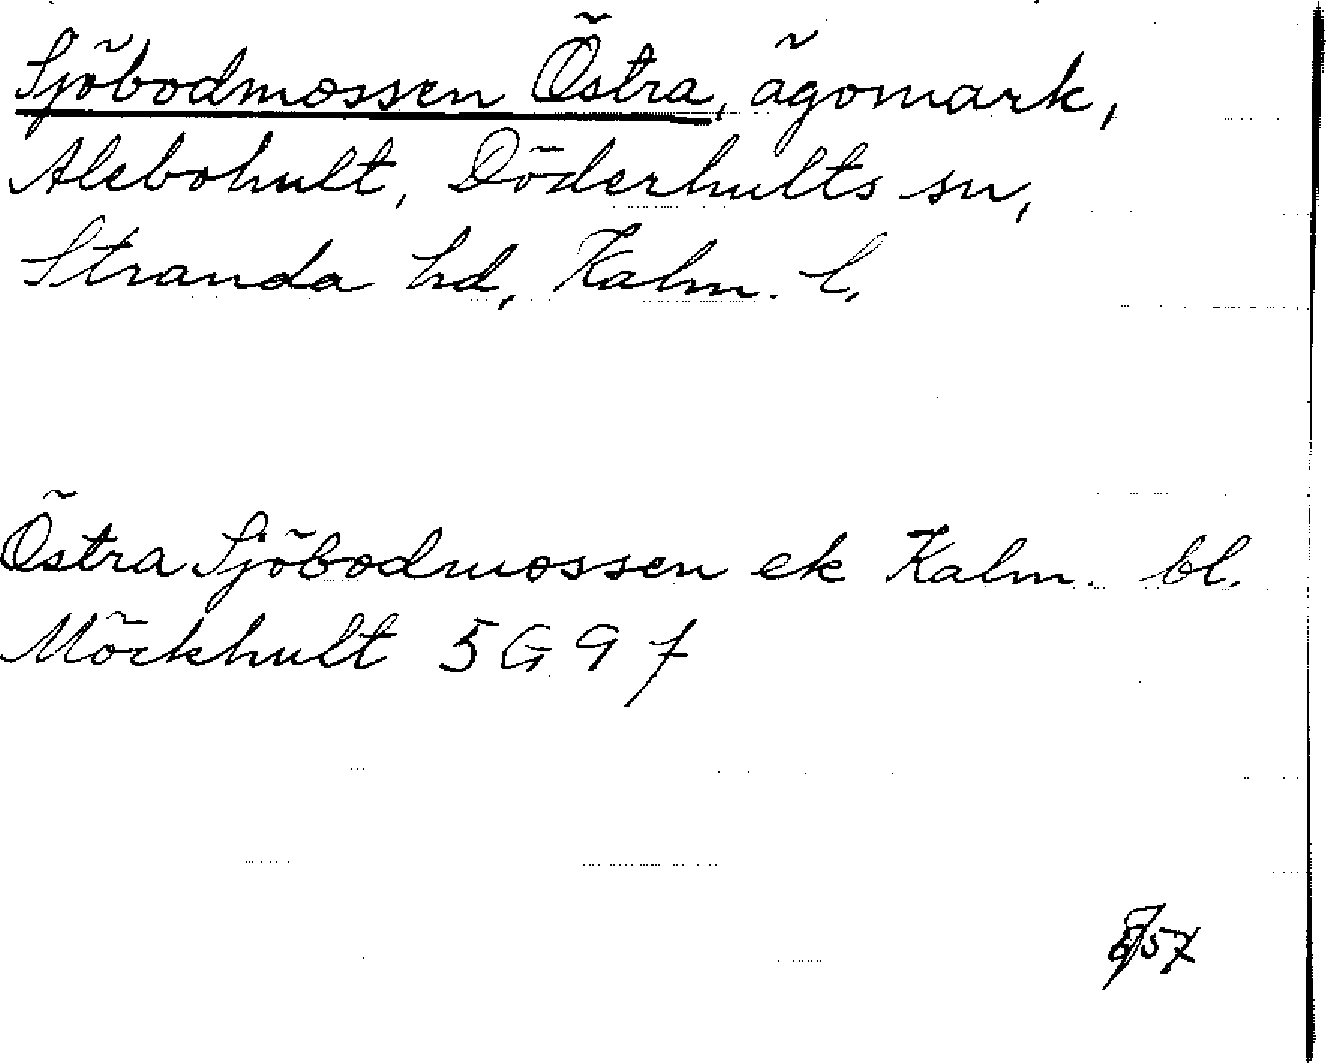 Sjöbodmossen Östra, ägomark,
Alebohult, Döderhults sn,
Stranda hd, Kalm. l.
Östra Sjöbodmossen ek Kalm. bl.
Möckhult 5G 9f